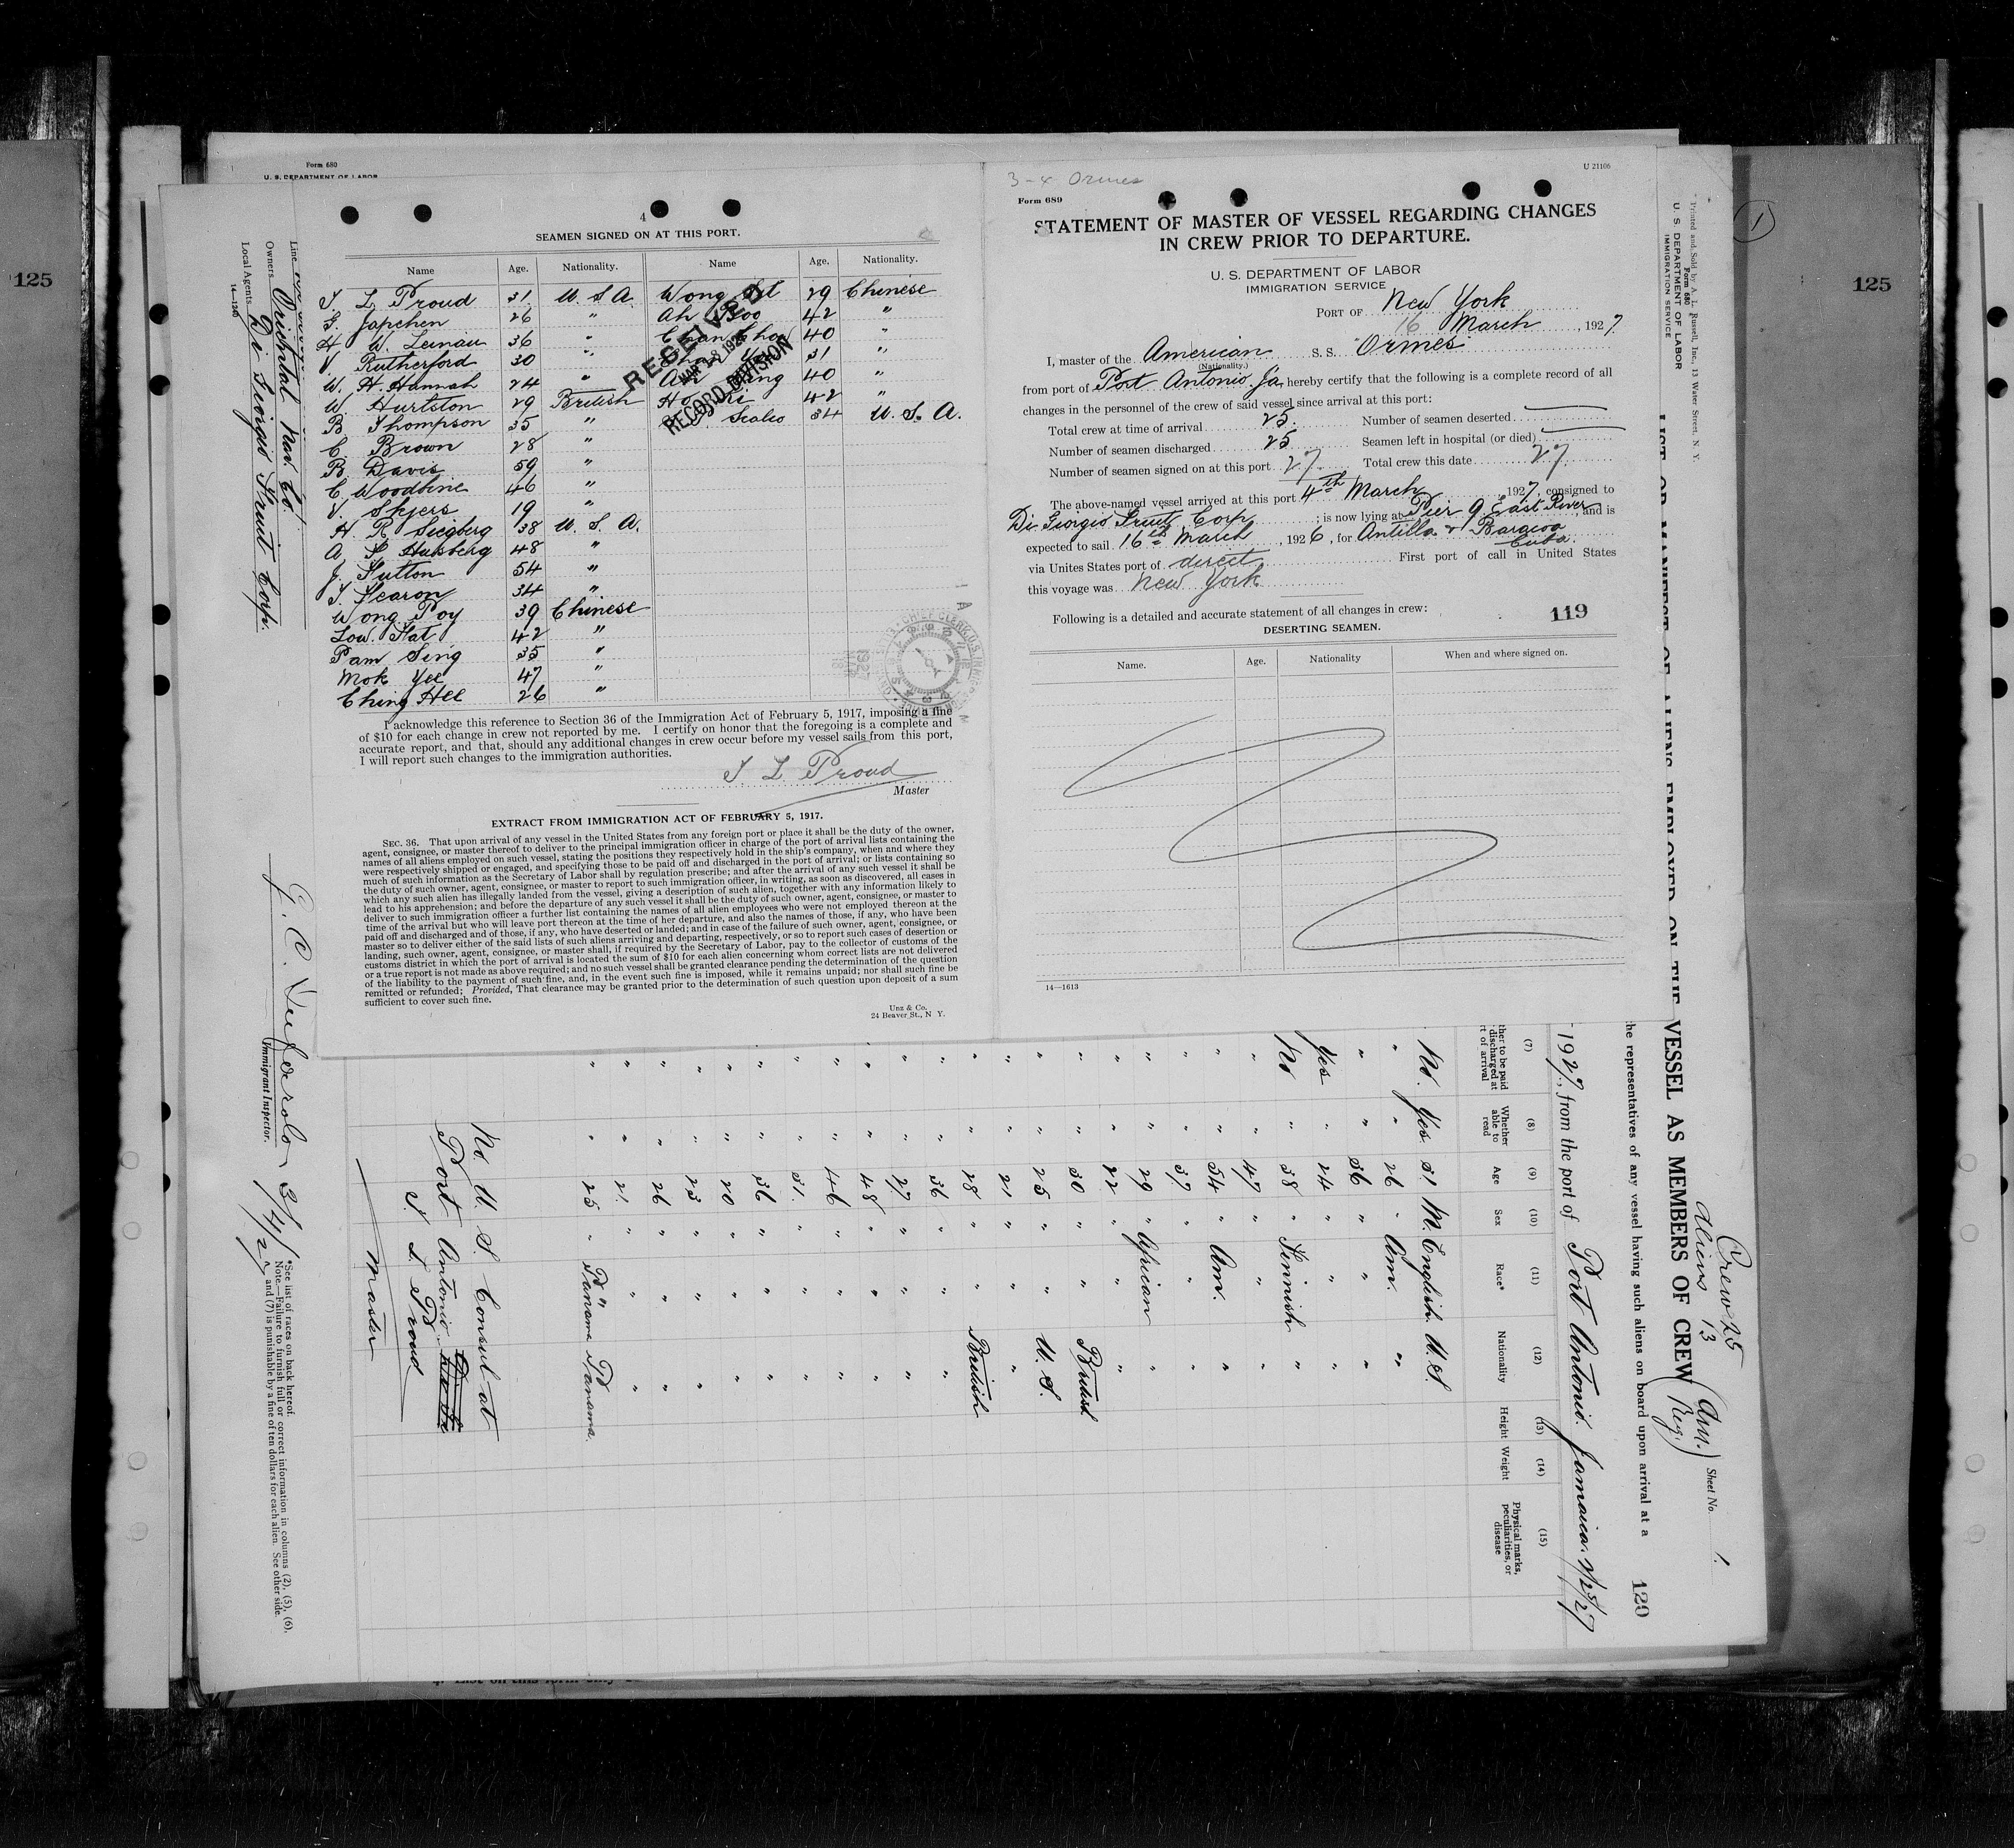 125
125
Form 680
U. S. DEPARTMENT OF LABOR
4
SEAMEN SIGNED ON AT THIS PORT.
Name Age. Nationality. Name Age. Nationality.
T. L. Proud 31 U. S. A. Wong 29 Chinese
G. Japchen 26 " Ah Foo 42 "
H W. Leinau 36 " Chan Cho 40 "
V. Rutherford 30 " 31 "
W. H. Hannah 24 " 40 "
W. Hurlston 29 British 42 "
B Thompson 35 " Scaleo 34 U. S. A.
C. Brown 28 "
B Davis 59 "
C Woodbine 46 "
V. Skjers 19 "
H. R Siegberg 38 U. S. A.
A. S. Hulsberg 48 "
J. Sutton 54 "
T. Fearon 34 "
Wong Poy 39 Chinese
Low Fat 42 "
Pam Sing 35 "
Mok Yee 47 "
Ching Hee 26 "
RECEIVED
RECORD DIVISION
I acknowledge this reference to Section 36 of the Immigration Act of February 5, 1917, imposing a fine
of $10 for each change in crew not reported by me. I certify on honor that the foregoing is a complete and
accurate report, and that, should any additional changes in crew occur before my vessel sails from this port,
I will report such changes to the immigration authorities.
T L Proud
Master
EXTRACT FROM IMMIGRATION ACT OF FEBRUARY 5, 1917.
SEC. 36. That upon arrival of any vessel in the United States from any foreign port or place it shall be the duty of the owner,
agent, consignee, or master thereof to deliver to the principal immigration officer in charge of the port of arrival lists containing the
names of all aliens employed on such vessel, stating the positions they respectively hold in the ship's company, when and where they
were respectively shipped or engaged, and specifying those to be paid off and discharged in the port of arrival; or lists containing so
much of such information as the Secretary of Labor shall by regulation prescribe; and after the arrival of any such vessel it shall be
the duty of such owner, agent, consignee, or master to report to such immigration officer, in writing, as soon as discovered, all cases in
which any such alien has illegally landed from the vessel, giving a description of such alien, together with any information likely to
lead to his apprehension; and before the departure of any such vessel it shall be the duty of such owner, agent, consignee, or master to
deliver to such immigration officer a further list containing the names of all alien employees who were not employed thereon at the
time of the arrival but who will leave port thereon at the time of her departure, and also the names of those, if any, who have been
paid off and discharged and of those, if any, who have deserted or landed; and in case of the failure of such owner, agent, consignee, or
master so to deliver either of the said lists of such aliens arriving and departing, respectively, or so to report such cases of desertion or
landing, such owner, agent, consignee, or master shall, if required by the Secretary of Labor, pay to the collector of customs of the
customs district in which the port of arrival is located the sum of $10 for each alien concerning whom correct lists are not delivered
or a true report is not made as above required; and no such vessel shall be granted clearance pending the determination of the question
of the liability to the payment of such fine, and, in the event such fine is imposed, while it remains unpaid; nor shall such fine be
remitted or refunded; Provided, That clearance may be granted prior to the determination of such question upon deposit of a sum
sufficient to cover such fine.
Unz & Co.
24 Beaver St., N Y.
3-4 Ormes
U 21106
Form 689
STATEMENT OF MASTER OF VESSEL REGARDING CHANGES
IN CREW PRIOR TO DEPARTURE.
U. S. DEPARTMENT OF LABOR
IMMIGRATION SERVICE
PORT OF New York
16 March, 1927
I, master of the American S. S. Ormes
(Nationality.)
from port of Port Antonio Ja, hereby certify that the following is a complete record of all
changes in the personnel of the crew of said vessel since arrival at this port:
Total crew at time of arrival 25. Number of seamen deserted
Number of seamen discharged 25 Seamen left in hospital (or died)
Number of seamen signed on at this port 27 Total crew this date 27
The above-named vessel arrived at this port 4th March, 1927, consigned to
Di Giorgio Fruit Corp; is now lying at Pier 9 East River, and is
expected to sail 16th March, 1926, for Antilla & Baracoa Cuba.
via Unites States port of direct First port of call in United States
this voyage was New York
Following is a detailed and accurate statement of all changes in crew:
119
DESERTING SEAMEN.
Name. Age. Nationality When and where signed on.
14—1613
Line
Owners Oriental Nav. Co.
Local Agents Di Giorgio Fruit Corp.
14—1240
Immigrant Inspector.
3/4/27
Printed and Sold by A. L. Russell, Inc., 13 Water Street, N. Y.
Form 680
U. S. DEPARTMENT OF LABOR
IMMIGRATION SERVICE
1
Crew 25
Aliens 13
(Am. Reg.)
Sheet No. 1.
LIST OR MANIFEST OF ALIENS EMPLOYED ON THE VESSEL AS MEMBERS OF CREW
the representatives of any vessel having such aliens on board upon arrival at a
120
1927, from the port of Port Antonio. Jamaica. 2/25/27
(7) (8) (9) (10) (11) (12) (13) (14) (15)
ther to be paid discharged at rt of arrival
Whether able to read
Age
Sex
Race*
Nationality
Height
Weight
Physical marks, peculiarities, or disease
No. Yes. 31 M. English. U. S.
" " 26 " Am. "
" " 36 " " "
Yes " 24 " " "
No " 38 " Finnish "
" " 47 " " "
" " 54 " Am. "
" " 37 " " "
" " 29 " African "
" " 22 " " "
" " 30 " " British
" " 25 " " U. S.
" " 21 " " "
" " 28 " " British
" " 36 " " "
" " 27 " " "
" " 48 " " "
" " 46 " " "
" " 31 " " "
" " 36 " " "
" " 20 " " "
" " 23 " " "
" " 26 " " "
" " 21 " " "
" " 25 " " Panama Panama.
No. U. S. Consul at
Port Antonio
T. L. Proud
Master
*See list of races on back hereof.
Note.—Failure to furnish full or correct information in columns (2), (5), (6),
and (7) is punishable by a fine of ten dollars for each alien. See other side.